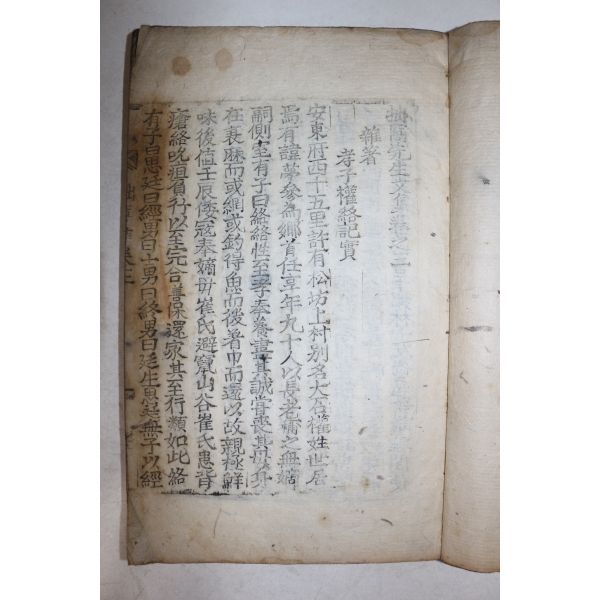 先生文集卷之三
雜著
孝子權絡記實
安東府西四十五里許有松坊上村別名大谷權姓世居
焉有諱夢參爲鄉首任享年九十人以長老稱之無嫡
嗣側室有子曰絡絡性至孝奉養盡其誠嘗喪其母身
在衰麻而或網或釣得魚而後着巾而還以故親極鮮
味後値壬辰倭寇奉嫡母崔氏避竄山谷崔氏患背
瘡絡吮疽負行以至完合善保還家其至行類如此絡
有子曰思廷曰經男曰士男曰終男曰廷生思廷無子以經